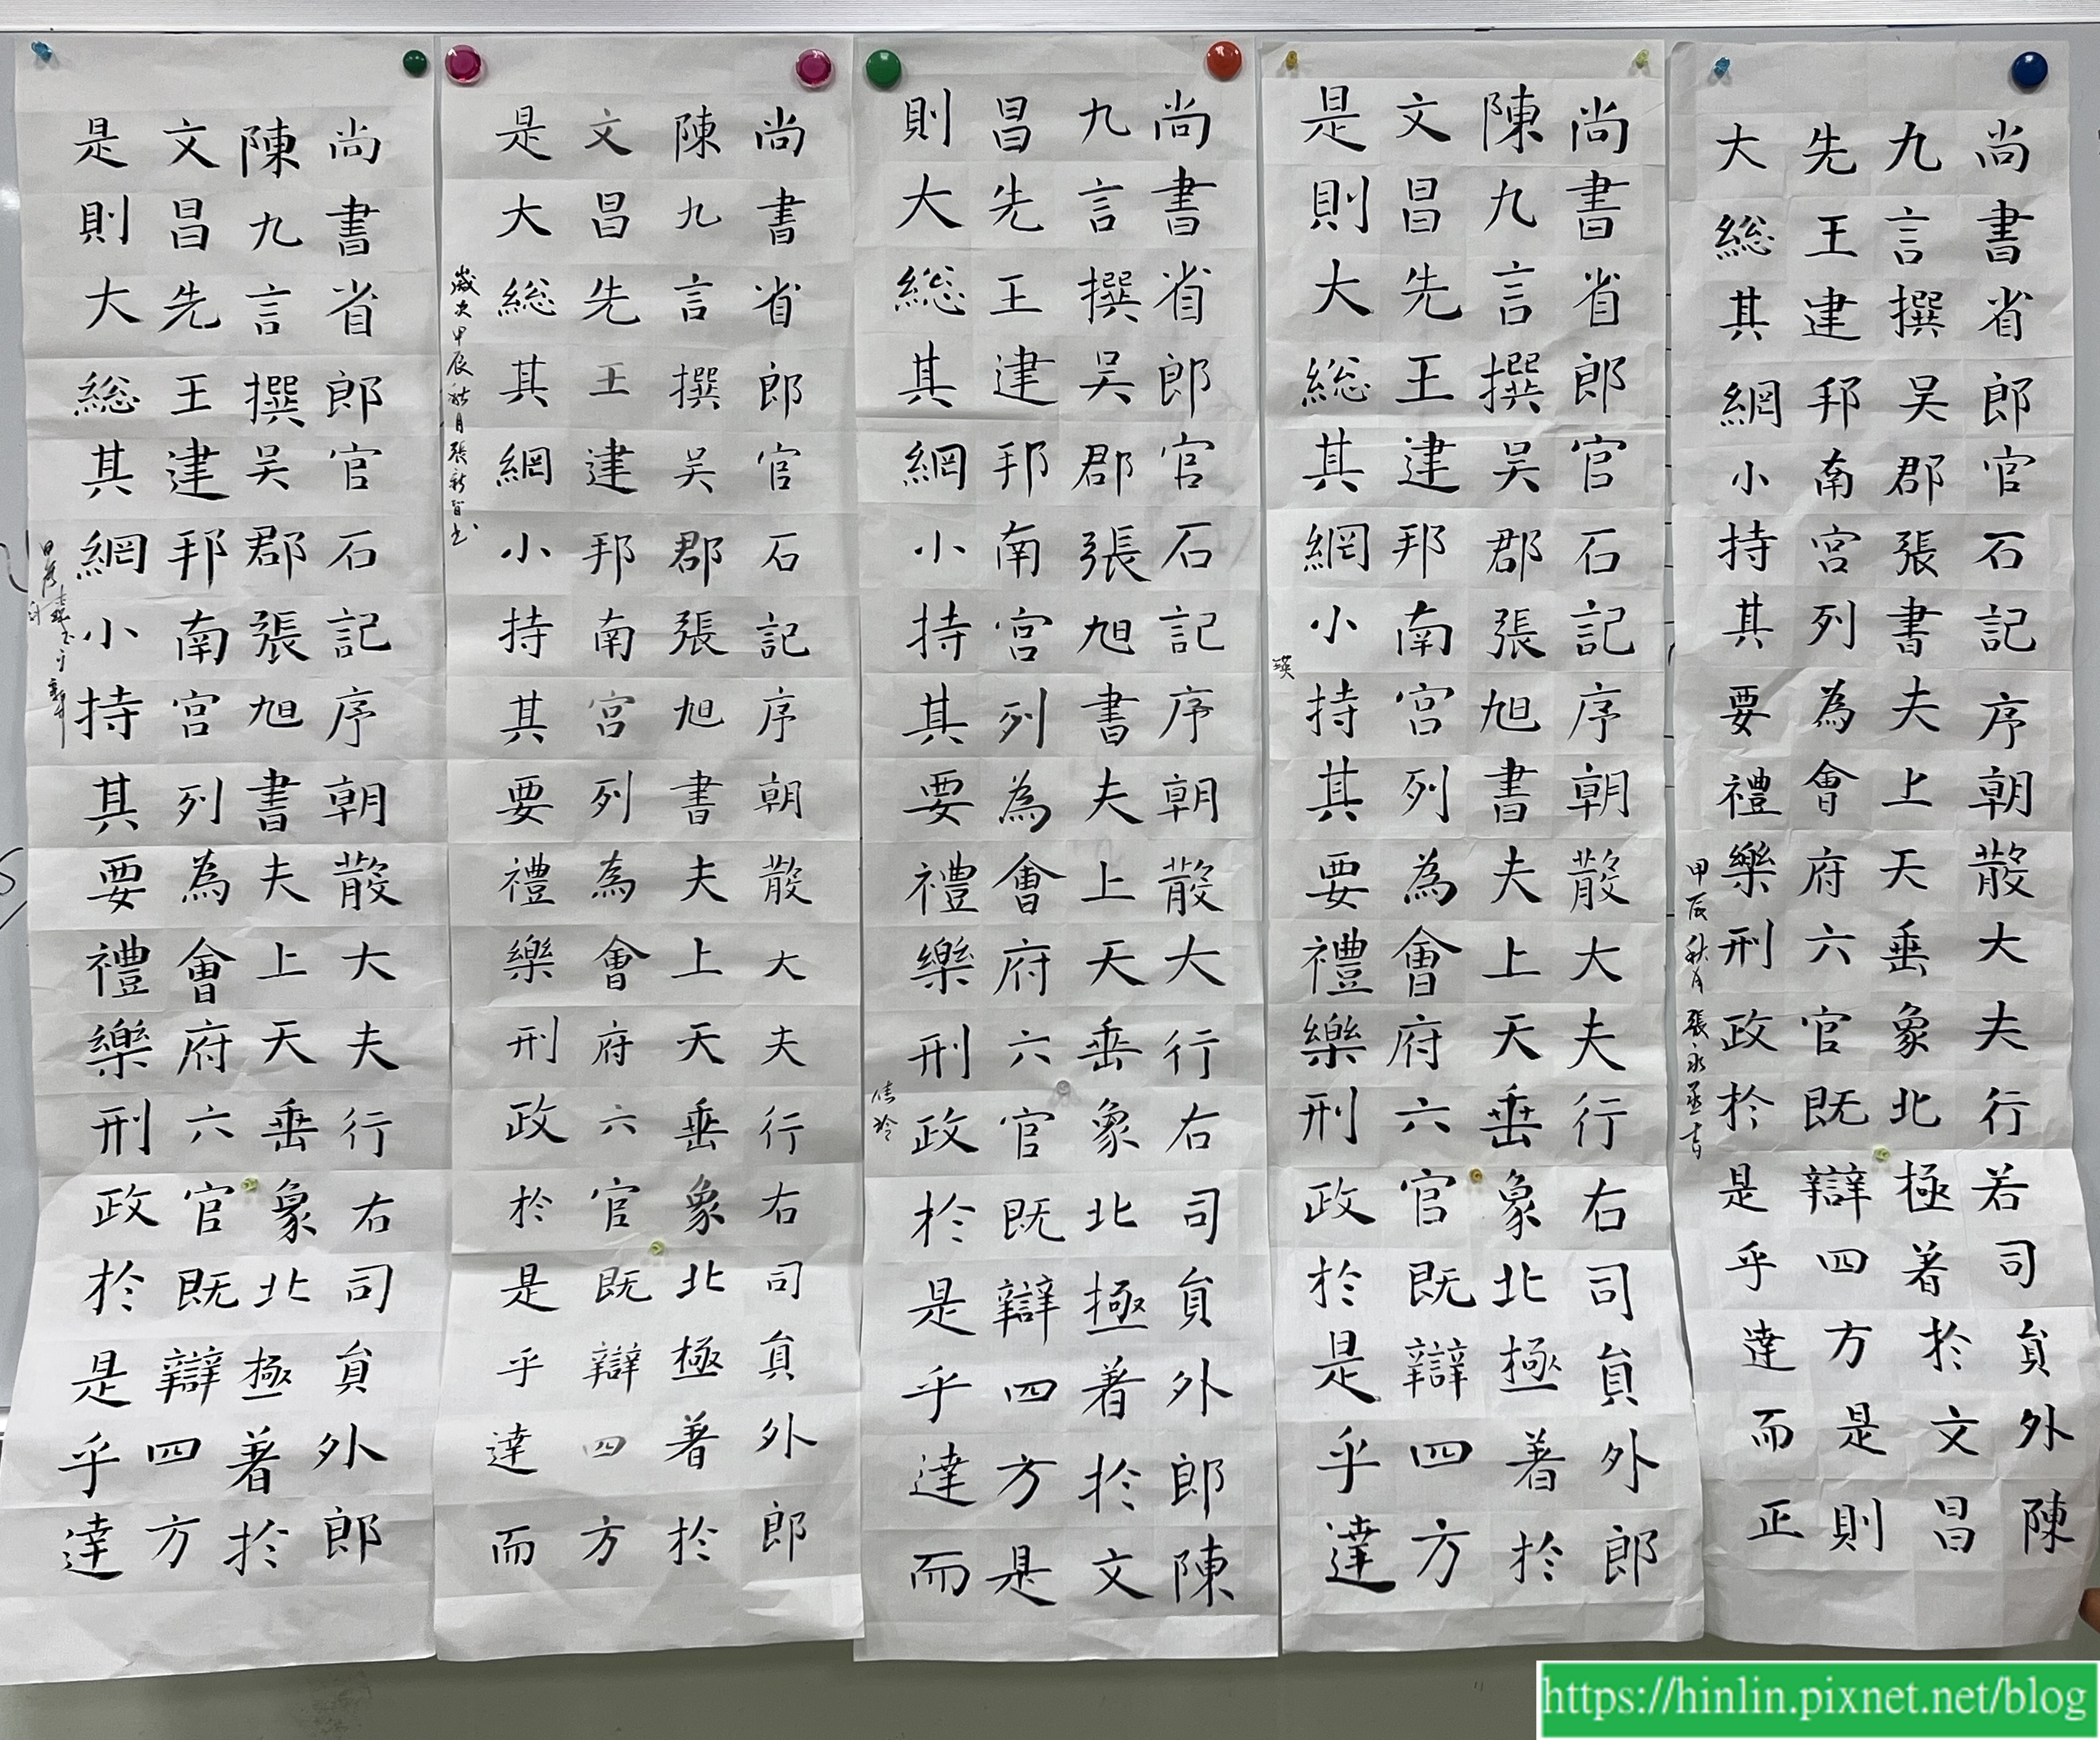 尚書省郎官石記序朝散大夫行若司貟外陳
九言撰吴郡張書夫上天垂象北極著於文昌
先王建邦南宮列為會府六官既辯四方是則
大総其網小持其要禮樂刑政於是乎達而正
甲辰秋月張永丞书
尚書省郎官石記序朝散大夫行右司貟外郎
陳九言撰吴郡張旭書夫上天垂象北極著於
文昌先王建邦南宮列為會府六官既辯四方
是則大総其網小持其要禮樂刑政於是乎達
瑛
尚書省郎官石記序朝散大夫行右司貟外郎陳
九言撰吴郡張旭書夫上天垂象北極著於文
昌先王建邦南宮列為會府六官既辯四方是
則大総其網小持其要禮樂刑政於是乎達而
佳玲
尚書省郎官石記序朝散大夫行右司貟外郎
陳九言撰吴郡張旭書夫上天垂象北極著於
文昌先王建邦南宮列為會府六官既辯四方
是大総其網小持其要禮樂刑政於是乎達而
歲次甲辰秋月張新智书
尚書省郎官石記序朝散大夫行右司貟外郎
陳九言撰吴郡張旭書夫上天垂象北極著於
文昌先王建邦南宮列為會府六官既辯四方
是則大総其網小持其要禮樂刑政於是乎達
https://hinlin.pixnet.net/blog